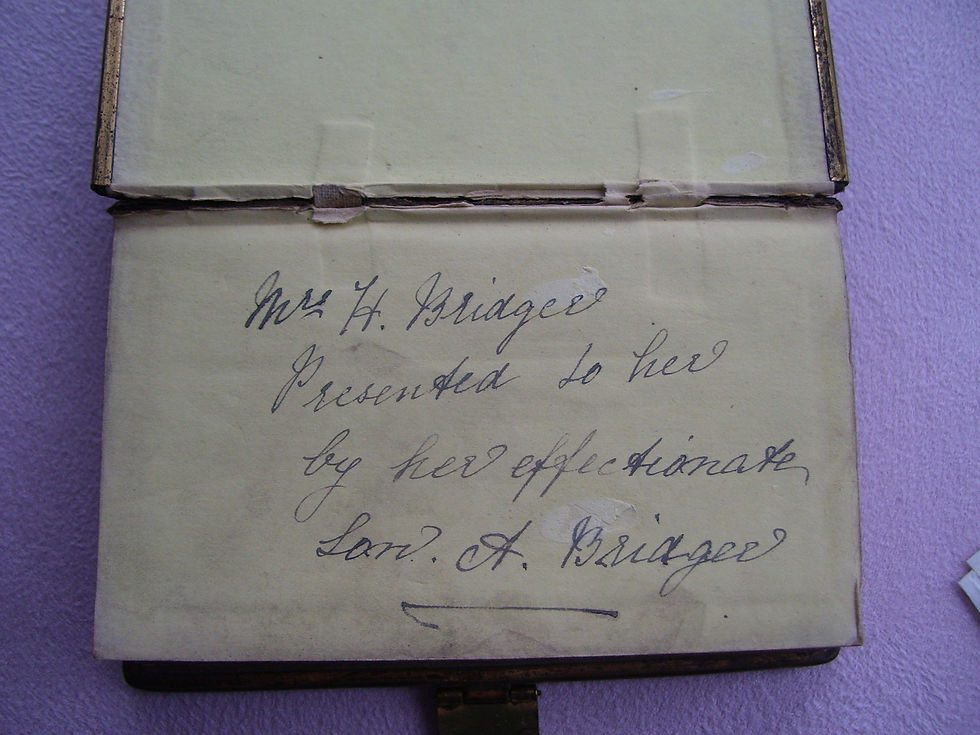 Mrs H. Bridger
Presented to her
by her effectionate
Son. A. Bridger